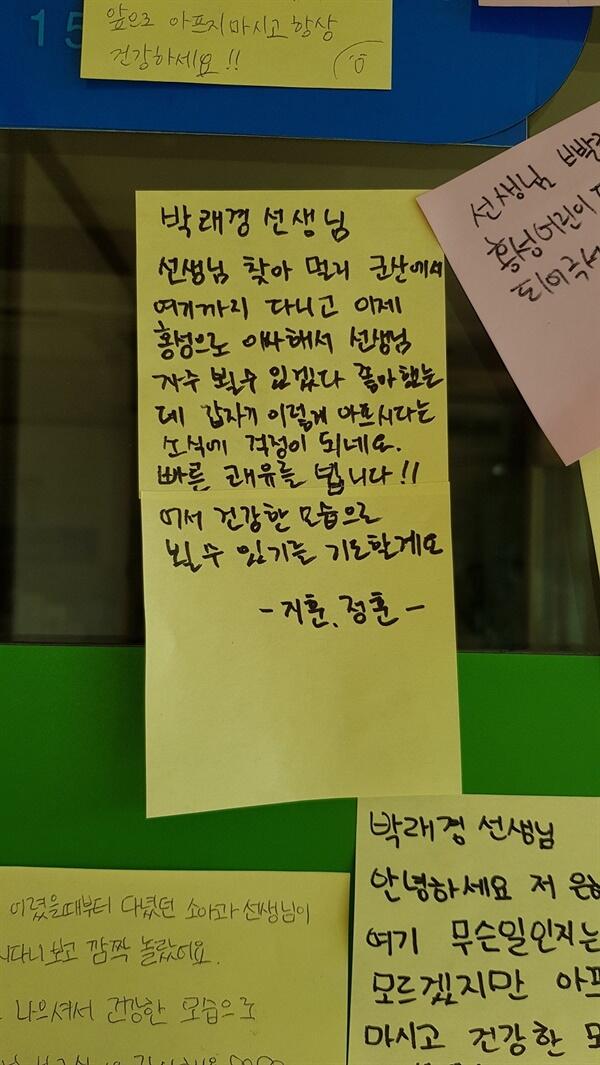 15
앞으로 아프지마시고 항상
건강하세요 !!
박래경 선생님
선생님 찾아 멀리 군산에서
여기까지 다니고 이제
황성으로 이사해서 선생님
자주 뵐수 있겠다 좋아했는
데 갑자기 이렇게 아프시다는
소식에 걱정이 되네요.
빠른 쾌유를 빕니다!!
어서 건강한 모습으로
뵐수 있기를 기도할게요
- 지훈, 정훈 -
선생님
황성어린이
박래경 선생님
안녕하세요 저
여기 무슨일인지는
모르겠지만
마시고 건강한
어렸을때부터 다녔던 소아과 선생님이
보고 깜짝 놀랐어요.
나으셔서 건강한 모습으로